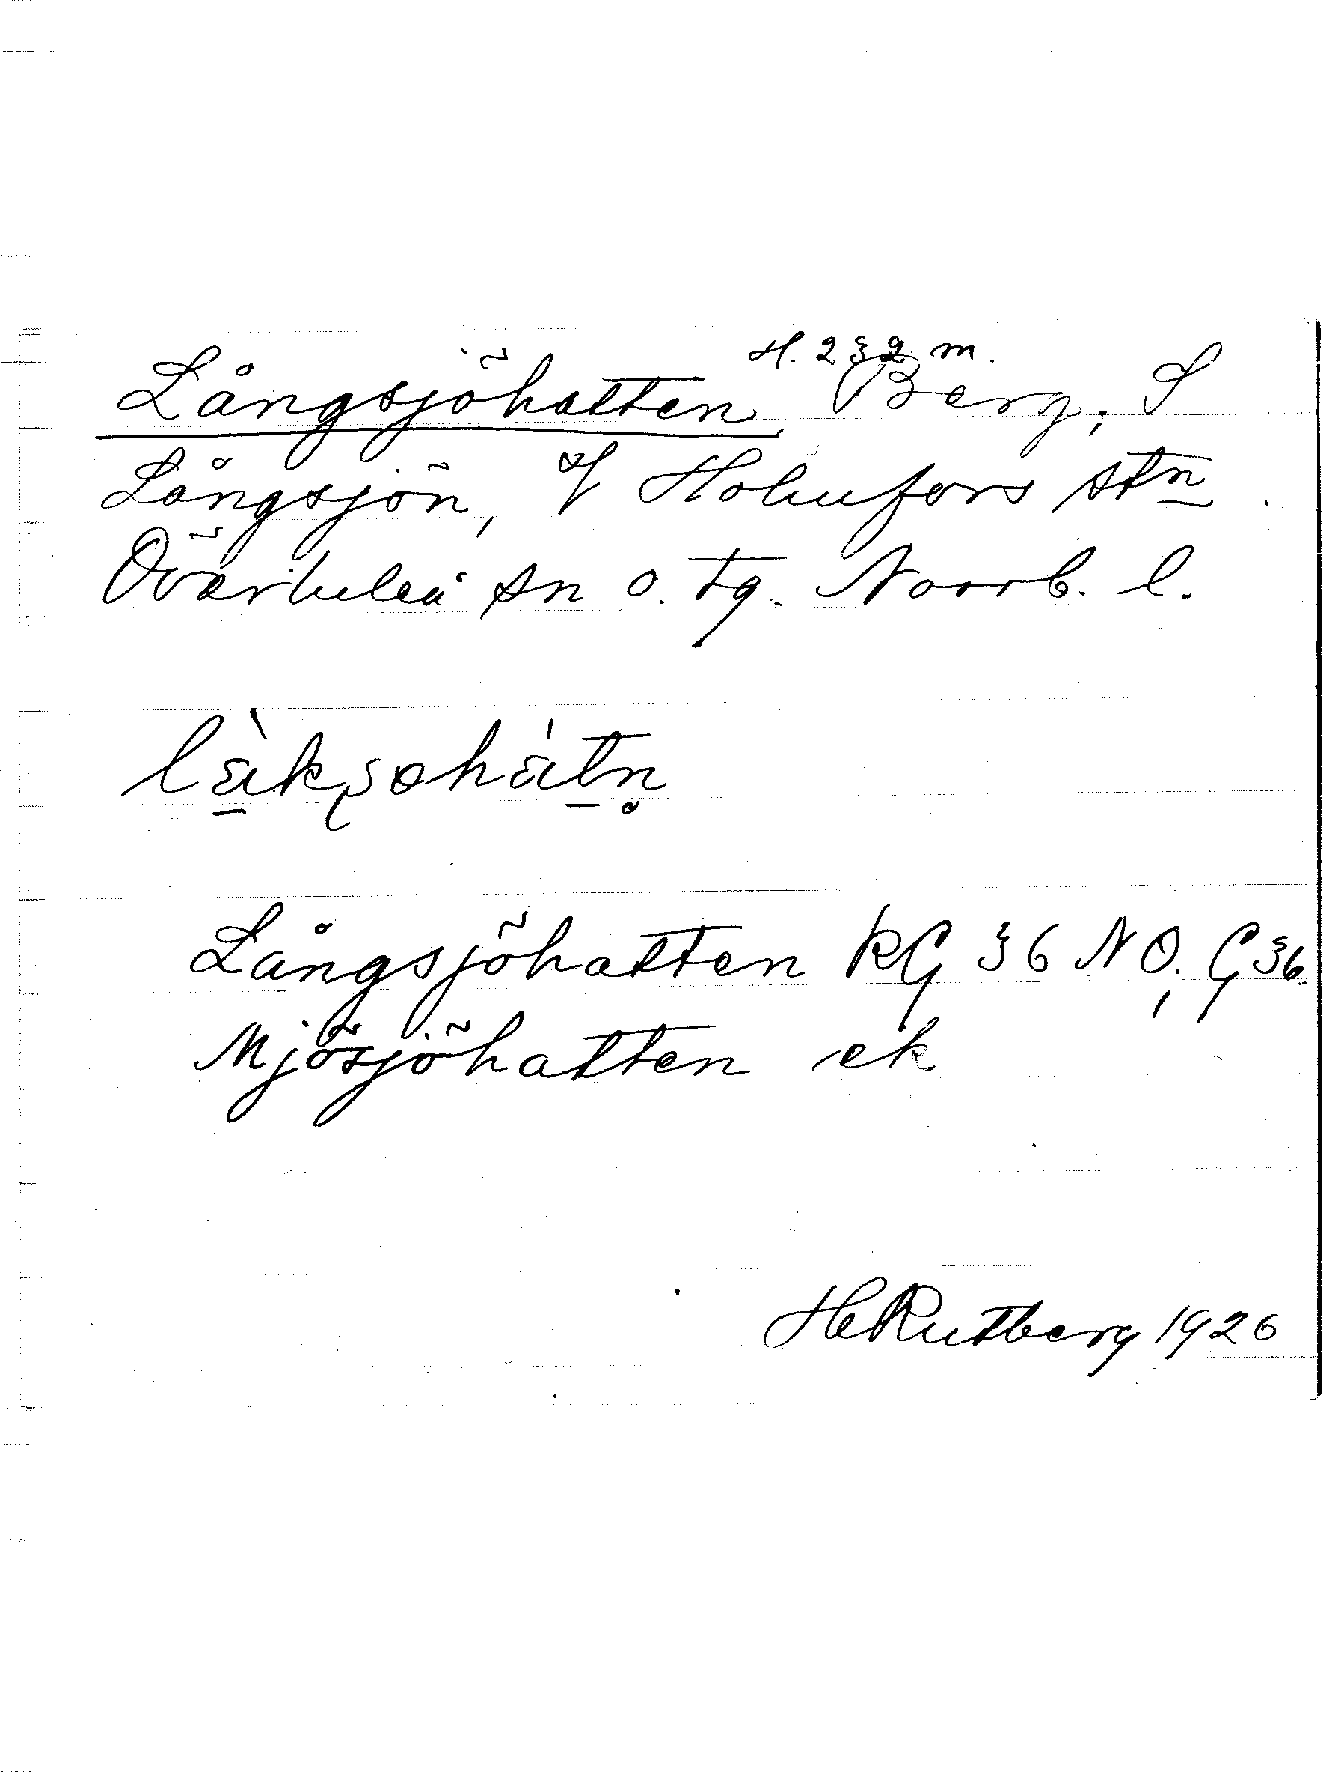 Långsjöhatten H. 232 m. Berg, S
Långsjön, Holmfors stn
Överluleå sn o. tg. Norrb. l.
Långsjöhatten KG 36 NO, G 36
Mjösjöhatten ek
HRutberg 1926